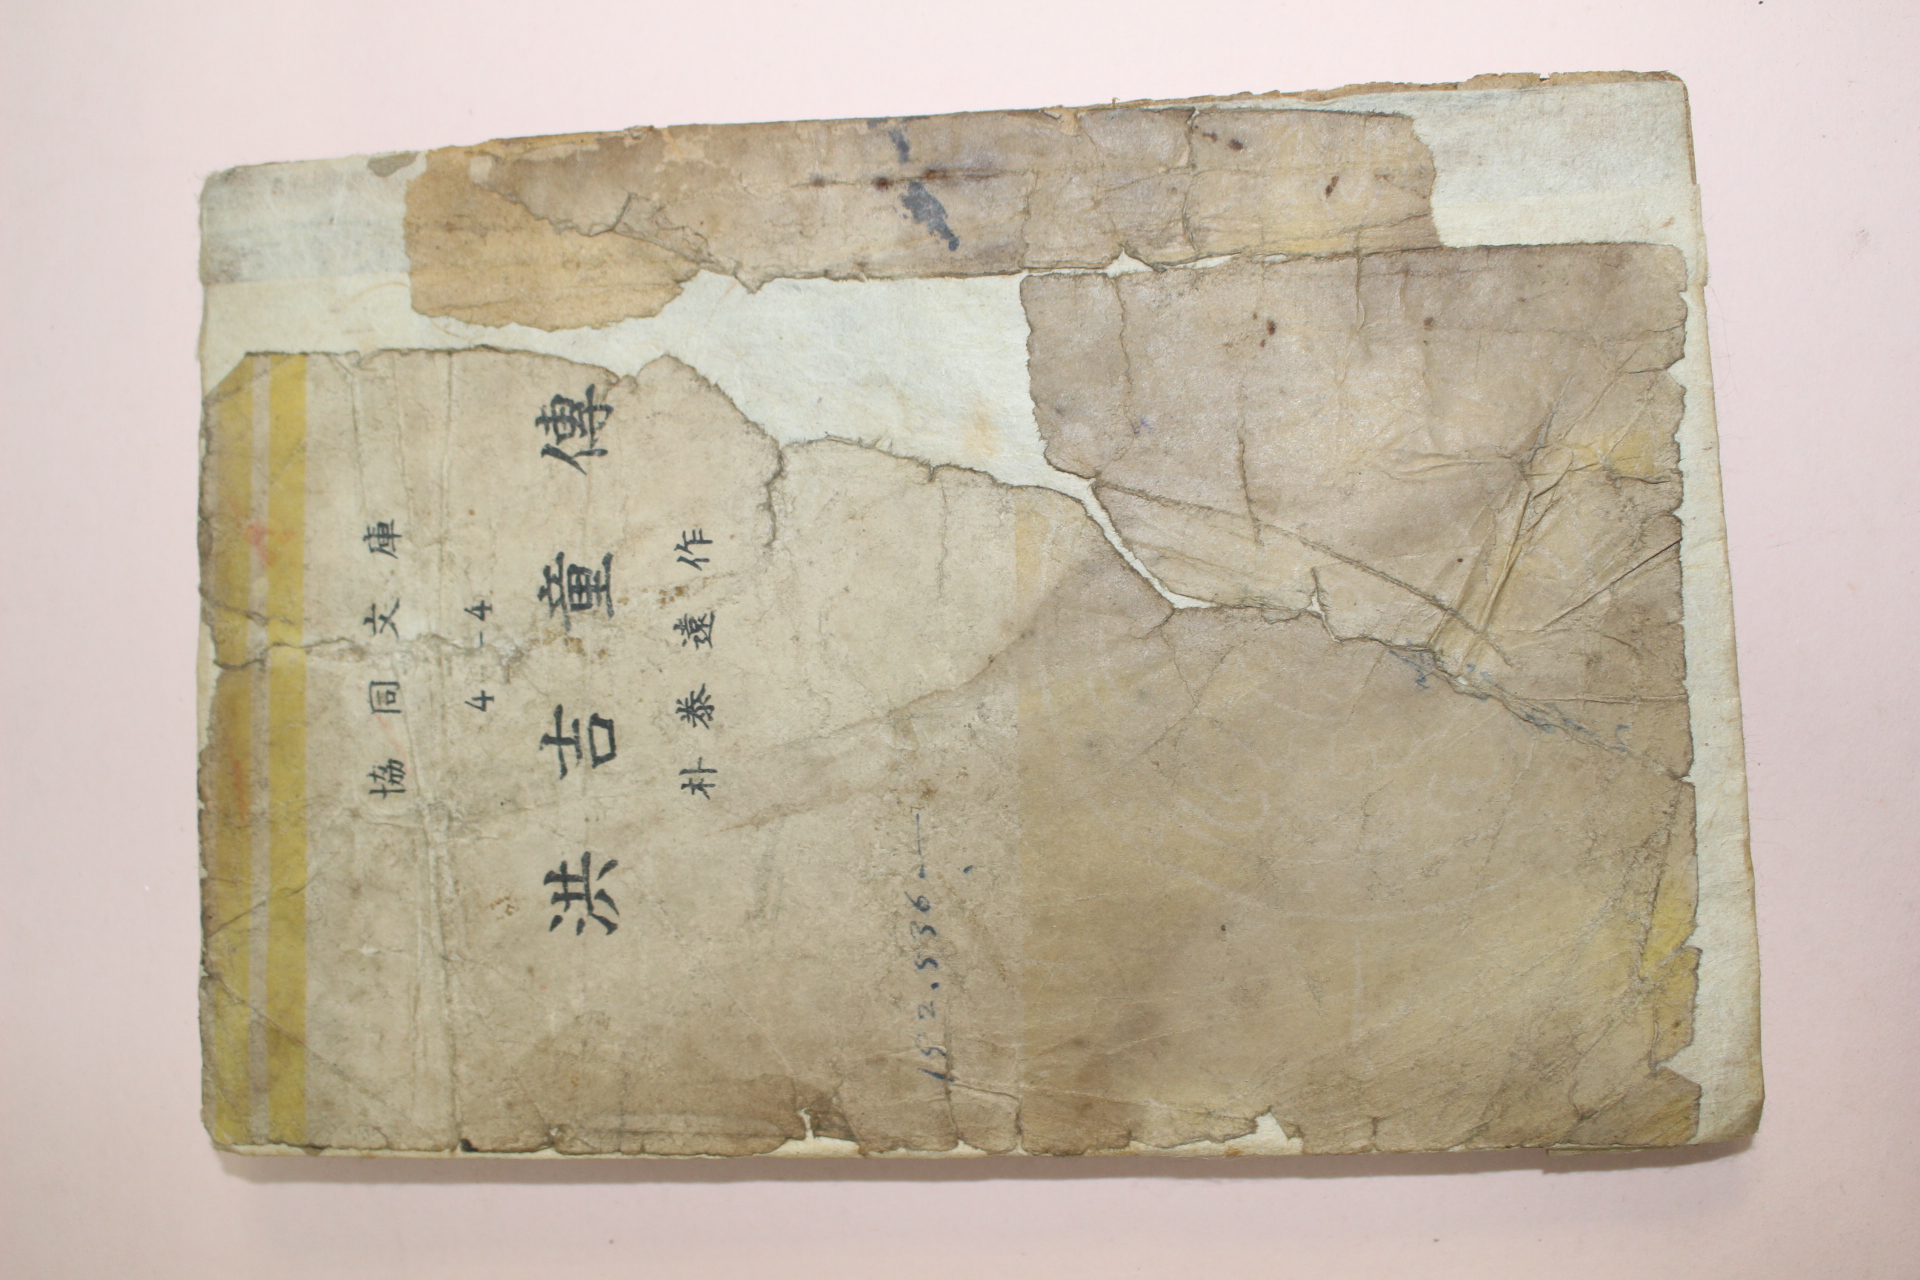 協同文庫
4—4
洪吉童傳
朴泰遠作